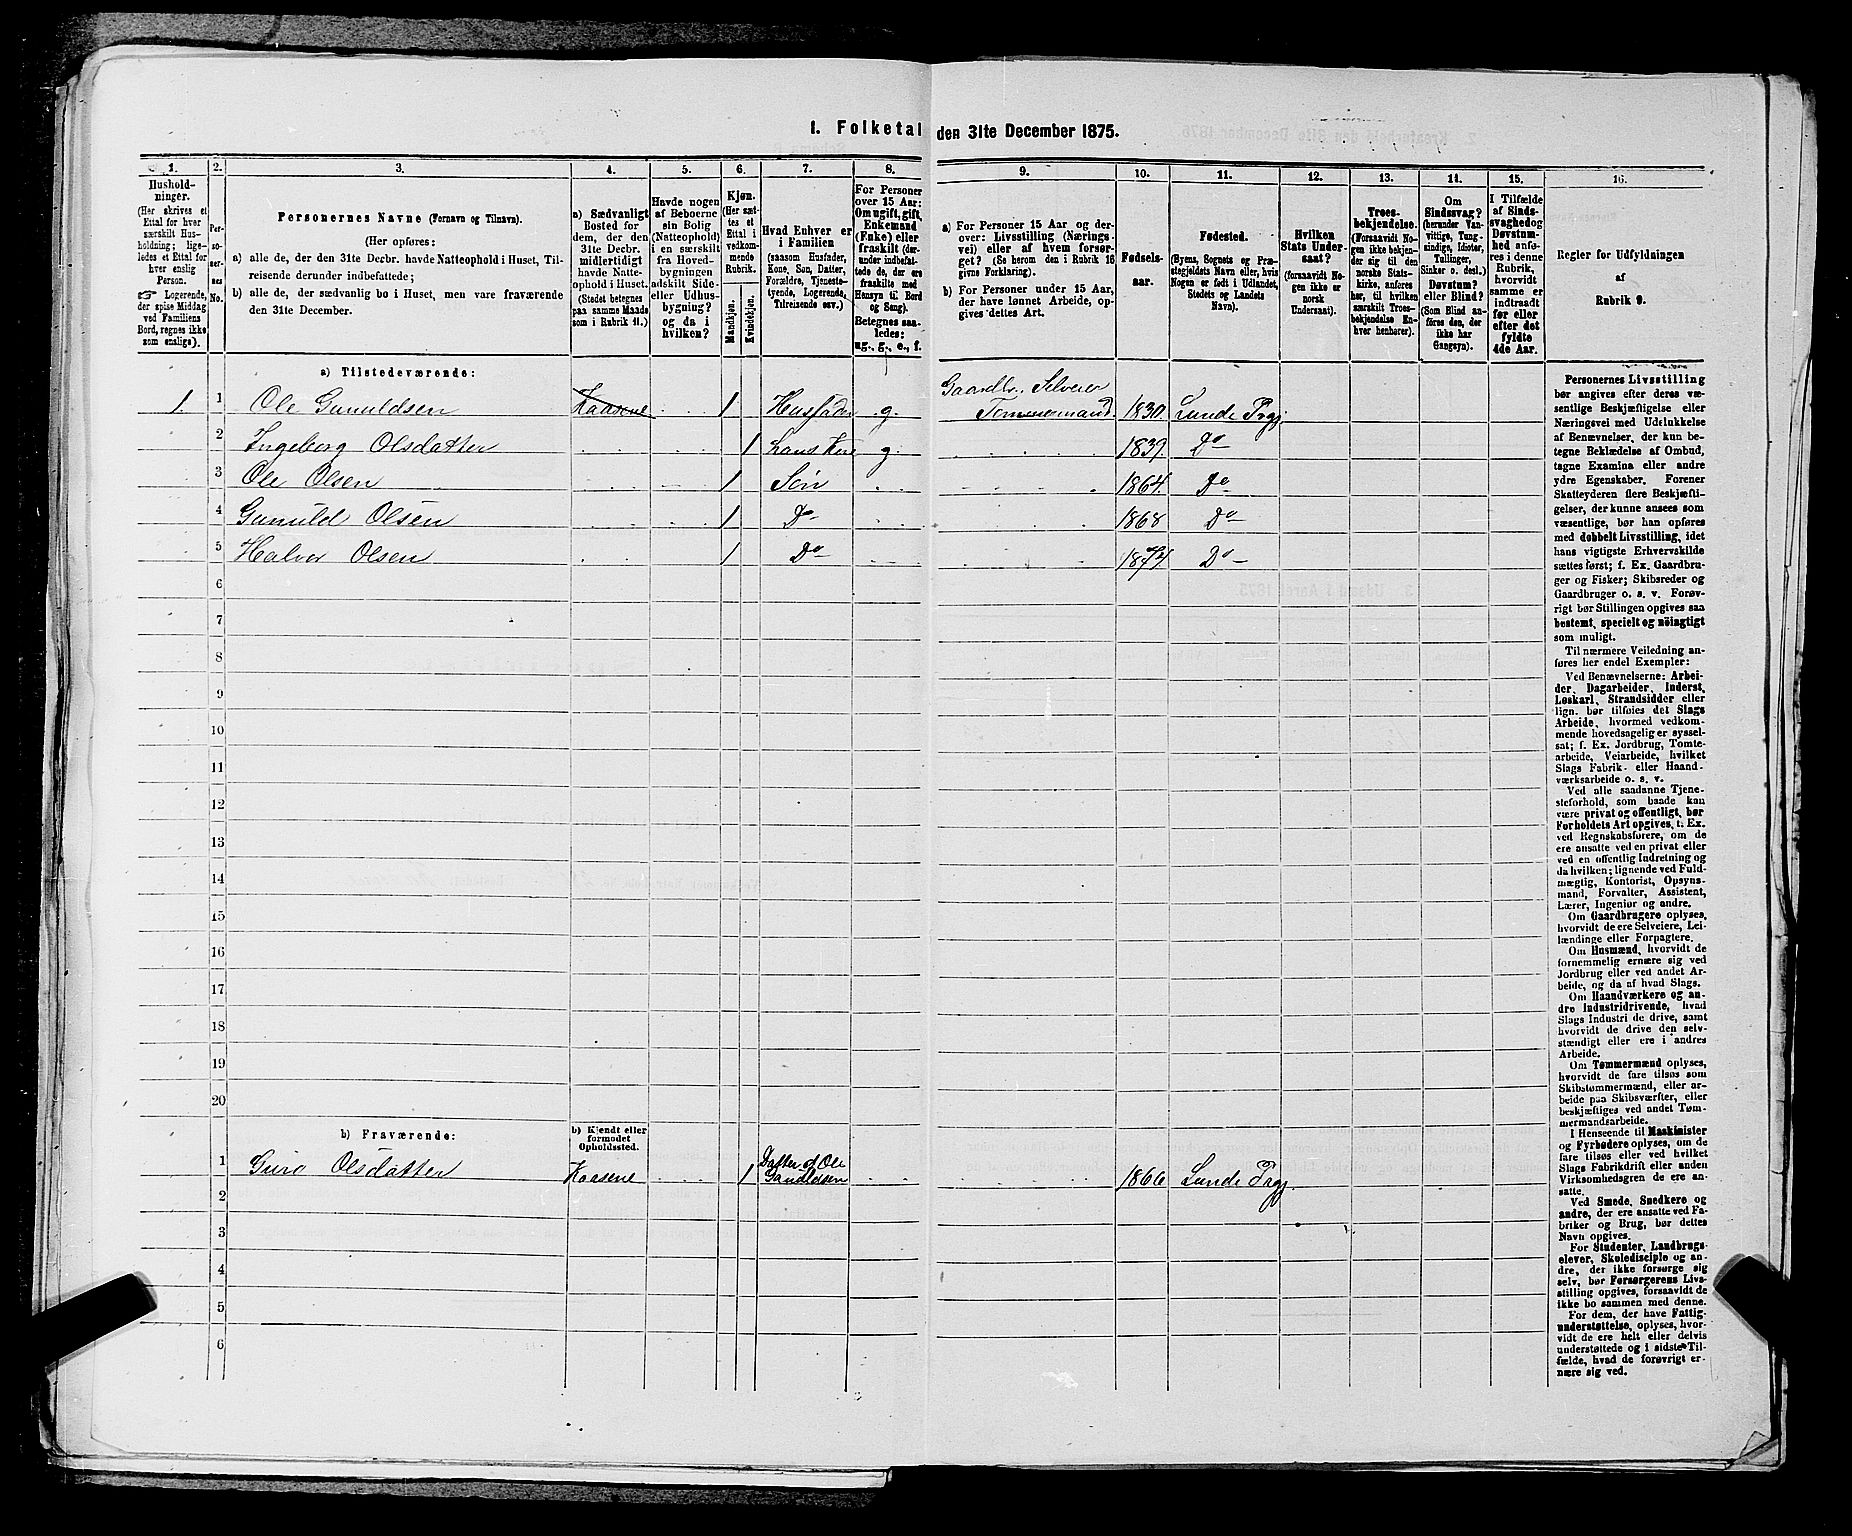 1. Folketal den 31te December 1875.
1. 2. 3. 4. 5. 6. 7. 8. 9. 10. 11. 12. 13. 14. 15. 16.
Hushold-
ninger.
(Her skrives et
Ettal for hver
særskilt Hus-
holdning; lige-
ledes et Ettal for
hver enslig
Person.
☞ Logerende,
der spise Middag
ved Familiens
Bord, regnes ikke
som enslige).
Per-
so-
ner-
nes
No.
Personernes Navne (Fornavn og Tilnavn).
(Her opføres:
a) alle de, der den 31te Decbr. havde Natteophold i Huset, Til-
reisende derunder indbefattede;
b) alle de, der sædvanlig bo i Huset, men vare fraværende
den 31te December.
a) Sædvanligt
Bosted for
dem, der den
31te Decbr.
midlertidigt
havde Natte-
ophold i Huset.
(Stedet betegnes
paa samme Maade
som i Rubrik 11.)
Havde nogen
af Beboerne
sin Bolig
(Natteophold)
i en særskilt
fra Hoved-
bygningen
adskilt Side-
eller Udhus-
bygning?
og da i
hvilken?
Kjøn.
(Her sæt-
tes et
Ettal i
vedkom-
mende
Rubrik.
Mandkjøn.
Kvindekjøn.
Hvad Enhver er
i Familien
(saasom Husfader,
Kone, Søn, Datter,
Forældre, Tjeneste-
tyende, Logerende,
Tilreisende osv.)
For Personer
over 15 Aar:
Om ugift, gift,
Enkemand
(Enke) eller
fraskilt (der-
under indbefat-
tede de, der ere
fraskilte med
Hensyn til Bord
og Seng).
Betegnes saa-
ledes:
ug., g., e., f.
a) For Personer 15 Aar og der-
over: Livsstilling (Nærings-
vei) eller af hvem forsør-
get? (Se herom den i Rubrik 16
givne Forklaring).
b) For Personer under 15 Aar,
der have lønnet Arbeide, op-
gives dettes Art.
Fødsels-
aar.
Fødested.
(Byens, Sognets og Præ-
stegjeldets Navn eller, hvis
Nogen er født i Udlandet,
Stedets og Landets
Navn).
Hvilken
Stats Under-
saat?
(forsaavidt No-
gen ikke er
norsk
Undersaat).
Troes-
bekjendelse.
(Forsaavidt No-
gen ikke bekjen-
der sig til den
norske Stats-
kirke, anføres
her, til hvilken
særskilt Troes-
bekjendelse En-
hver henhører).
Om
Sindssvag?
(herunder Van-
vittige, Tung-
sindige, Idioter,
Tullinger,
Sinker o. desl.)
Døvstum?
eller Blind?
(Som Blind an-
føres den, der
ikke har
Gangsyn).
I Tilfælde
af Sinds-
svaghed og
Døvstum-
hed anfø-
res i denne
Rubrik,
hvorvidt
samme er
indtraadt
før eller
efter det
fyldte
4de Aar.
Regler for Udfyldningen
af
Rubrik 9.
a) Tilstedeværende:
1. 1 Ole Gunuldsen Kaasene 1 Husfader g. Gaardbr. Selveier
Tømmermand 1830. Lunde Prgj.
2 Ingeborg Olsdatter 1 hans Kone g. 1839. Do
3 Ole Olsen 1 Søn 1864. Do
4 Gunuld Olsen 1 Do 1868 Do
5 Halvor Olsen 1 Do 1874. Do
6
7
8
9
10
11
12
13
14
15
16
17
18
19
20
b) Fraværende:
b) Kjendt eller
formodet
Opholdssted.
1 Guro Olsdatter Kaasene 1 Datter af Ole
Gunuldsen 1866 Lunde Prgj.
2
3
4
5
6
Personernes Livsstilling
bør angives efter deres væ-
sentlige Beskjæftigelse eller
Næringsvei med Udelukkelse
af Benævnelser, der kun be-
tegne Beklædelse af Ombud,
tagne Examina eller andre
ydre Egenskaber. Forener
Skatteyderen flere Beskjæfti-
gelser, der kunne ansees som
væsentlige, bør han opføres
med dobbelt Livsstilling, idet
hans vigtigste Erhvervskilde
sættes først; f. Ex. Gaardbru-
ger og Fisker; Skibsreder og
Gaardbruger o. s. v. Forøv-
rigt bør Stillingen opgives saa
bestemt, specielt og nöiagtigt
som muligt.
Til nærmere Veiledning an-
føres her endel Exempler:
Ved Benævnelserne: Arbei-
der, Dagarbeider, Inderst,
Løskarl, Strandsidder eller
lign. bør tilføies det Slags
Arbeide, hvormed vedkom-
mende hovedsagelig er syssel-
sat; f. Ex. Jordbrug, Tomte-
arbeide, Veiarbeide, hvilket
Slags Fabrik- eller Haand-
værksarbeide o. s. v.
Ved alle saadanne Tjene-
steforhold, som baade kan
være privat og offentligt, bør
Forholdets Art opgives, t. Ex.
ved Regnskabsførere, om de
ere ansatte ved en privat eller
ved en offentlig Indretning og
da hvilken; lignende ved Fuld-
mægtig, Kontorist, Opsyns-
mand, Forvalter, Assistent,
Lærer, Ingeniør og andre.
Om Gaardbrugere oplyses,
hvorvidt de ere Selveiere, Lei-
lændinge eller Forpagtere.
Om Husmænd, hvorvidt de
fornemmelig ernære sig ved
Jordbrug eller ved andet Ar-
beide, og da af hvad Slags.
Om Haandværkere og an-
dre Industridrivende, hvad
Slags Industri de drive, samt
hvorvidt de drive den selv-
stændigt eller ere i andres
Arbeide.
Om Tømmermænd oplyses,
hvorvidt de fare tilsøs som
Skibstømmermænd, eller ar-
beide paa Skibsværfter, eller
beskjæftiges ved andet Tøm-
mermandsarbeide.
I Henseende til Maskinister
og Fyrbødere oplyses, om de
fare tilsøs eller ved hvilket
Slags Fabrikdrift eller anden
Virksomhedsgren de ere an-
satte.
Ved Smede, Snedkere og
andre, der ere ansatte ved Fa-
briker og Brug, bør dettes
Navn opgives.
For Studenter, Landbrugs-
elever, Skoledisciple og an-
dre, der ikke forsørge sig
selv, bør Forsørgerens Livs-
stilling opgives, forsaavidt de
ikke bo sammen med denne.
For dem, der have Fattig-
understøttelse, oplyses, hvor-
vidt de ere helt eller delvis
understøttede og i sidste Til-
fælde, hvad de forøvrigt er-
nære sig ved.